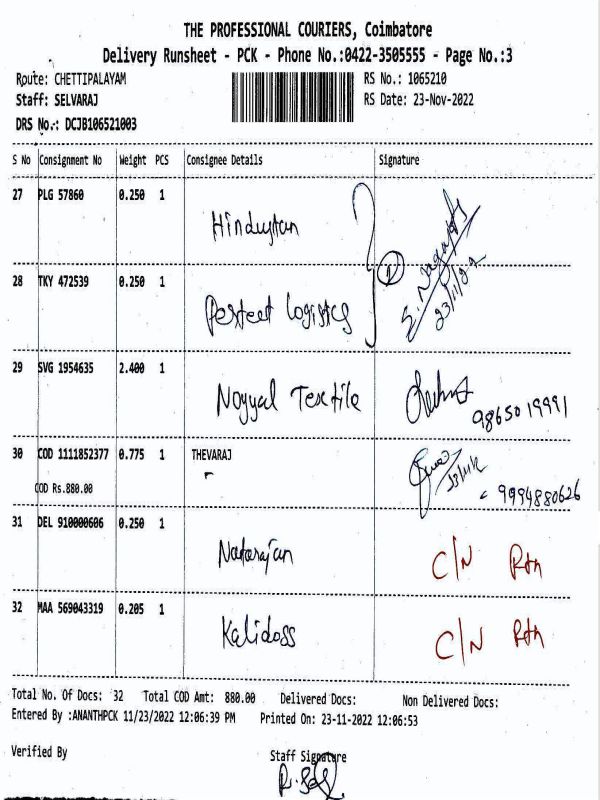 THE PROFESSIONAL COURIERS, Coimbatore
Delivery Runsheet - PCK - Phone No.:0422-3505555 - Page No.:3
Route: CHETTIPALAYAM RS No.: 1065210
Staff: SELVARAJ RS Date: 23-Nov-2022
DRS No.: DCJB106521003
S No Consignment No Weight PCS Consignee Details Signature
27 PLG 57860 0.250 1 Hindustan
28 TKY 472539 0.250 1 Perfect Logistics
1
23/11/22
29 SVG 1954635 2.400 1 Noyyal Textile
9865019991
30 COD 1111852377 0.775 1 THEVARAJ
COD Rs.880.00 9994880626
31 DEL 910000606 0.250 1 Natarajan C/N Rtn
32 MAA 569043319 0.205 1 Kalidoss C/N Rtn
Total No. Of Docs: 32 Total COD Amt: 880.00 Delivered Docs: Non Delivered Docs:
Entered By :ANANTHPCK 11/23/2022 12:06:39 PM Printed On: 23-11-2022 12:06:53
Verified By Staff Signature